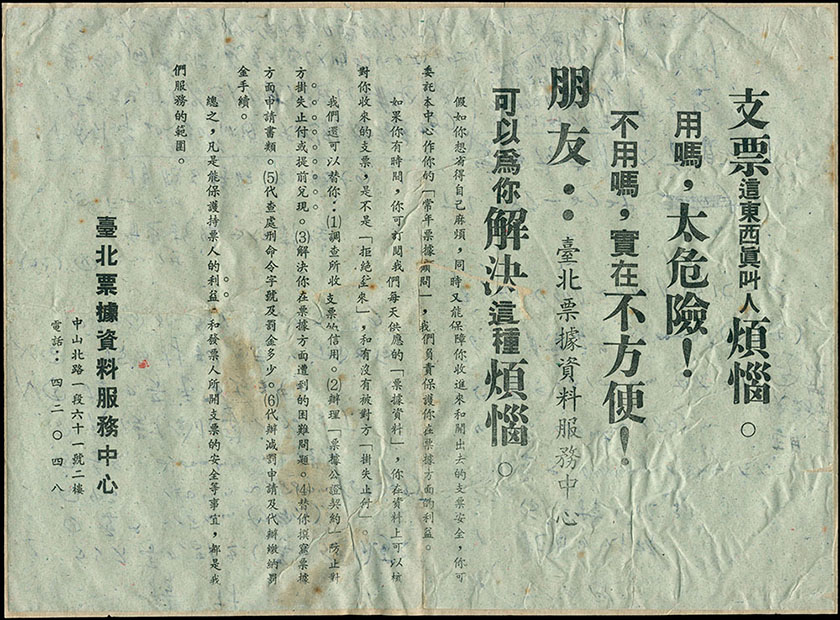 支票這東西眞叫人煩惱。
用嗎，太危險！
不用嗎，實在不方便！
朋友：臺北票據資料服務中心
可以爲你解決這種煩惱。
假如你想省得自己麻煩，同時又能保障你收進來和開出去的支票安全，你可
委託本中心作你的「常年票據顧問」，我們負責保護你在票據方面的利益。
如果你有時間，你可訂閱我們每天供應的「票據資料」，你在資料上可以核
對你收來的支票，是不是「拒絶往來」，和有沒有被對方「掛失止付」。
我們還可以替你：⑴調查所收支票的信用。⑵辦理「票據公證契約」防止對
方掛失止付或提前兌現。⑶解決你在票據方面遭到的困難問題。⑷替你撰寫票據
方面申請書類。⑸代查處刑命令字號及罰金多少。⑹代辦減罰申請及代辦繳納罰
金手續。
總之，凡是能保護持票人的利益，和發票人所開支票的安全等事宜，都是我
們服務的範圍。
臺北票據資料服務中心
中山北路一段六十一號二樓
電話：四二〇四八